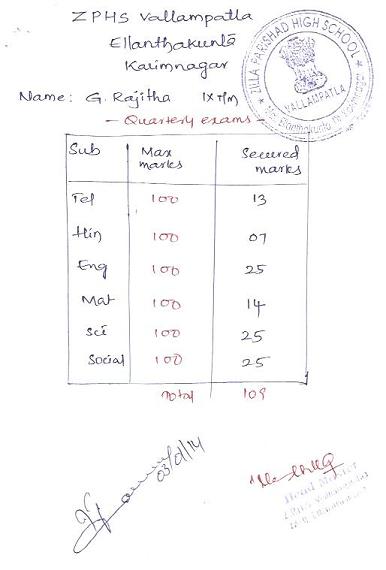 ZPHS Vallampatla
Ellanthakunta
Karimnagar
ZILLA PARISHAD HIGH SCHOOL
VALLAMPATLA
Name: G. Rajitha IX T/m
- Quarterly exams -
Sub Max marks Secured marks
Tel 100 13
Hin 100 07
Eng 100 25
Mat 100 14
Sci 100 25
Social 100 25
Total 109
03/01/14
Head Master